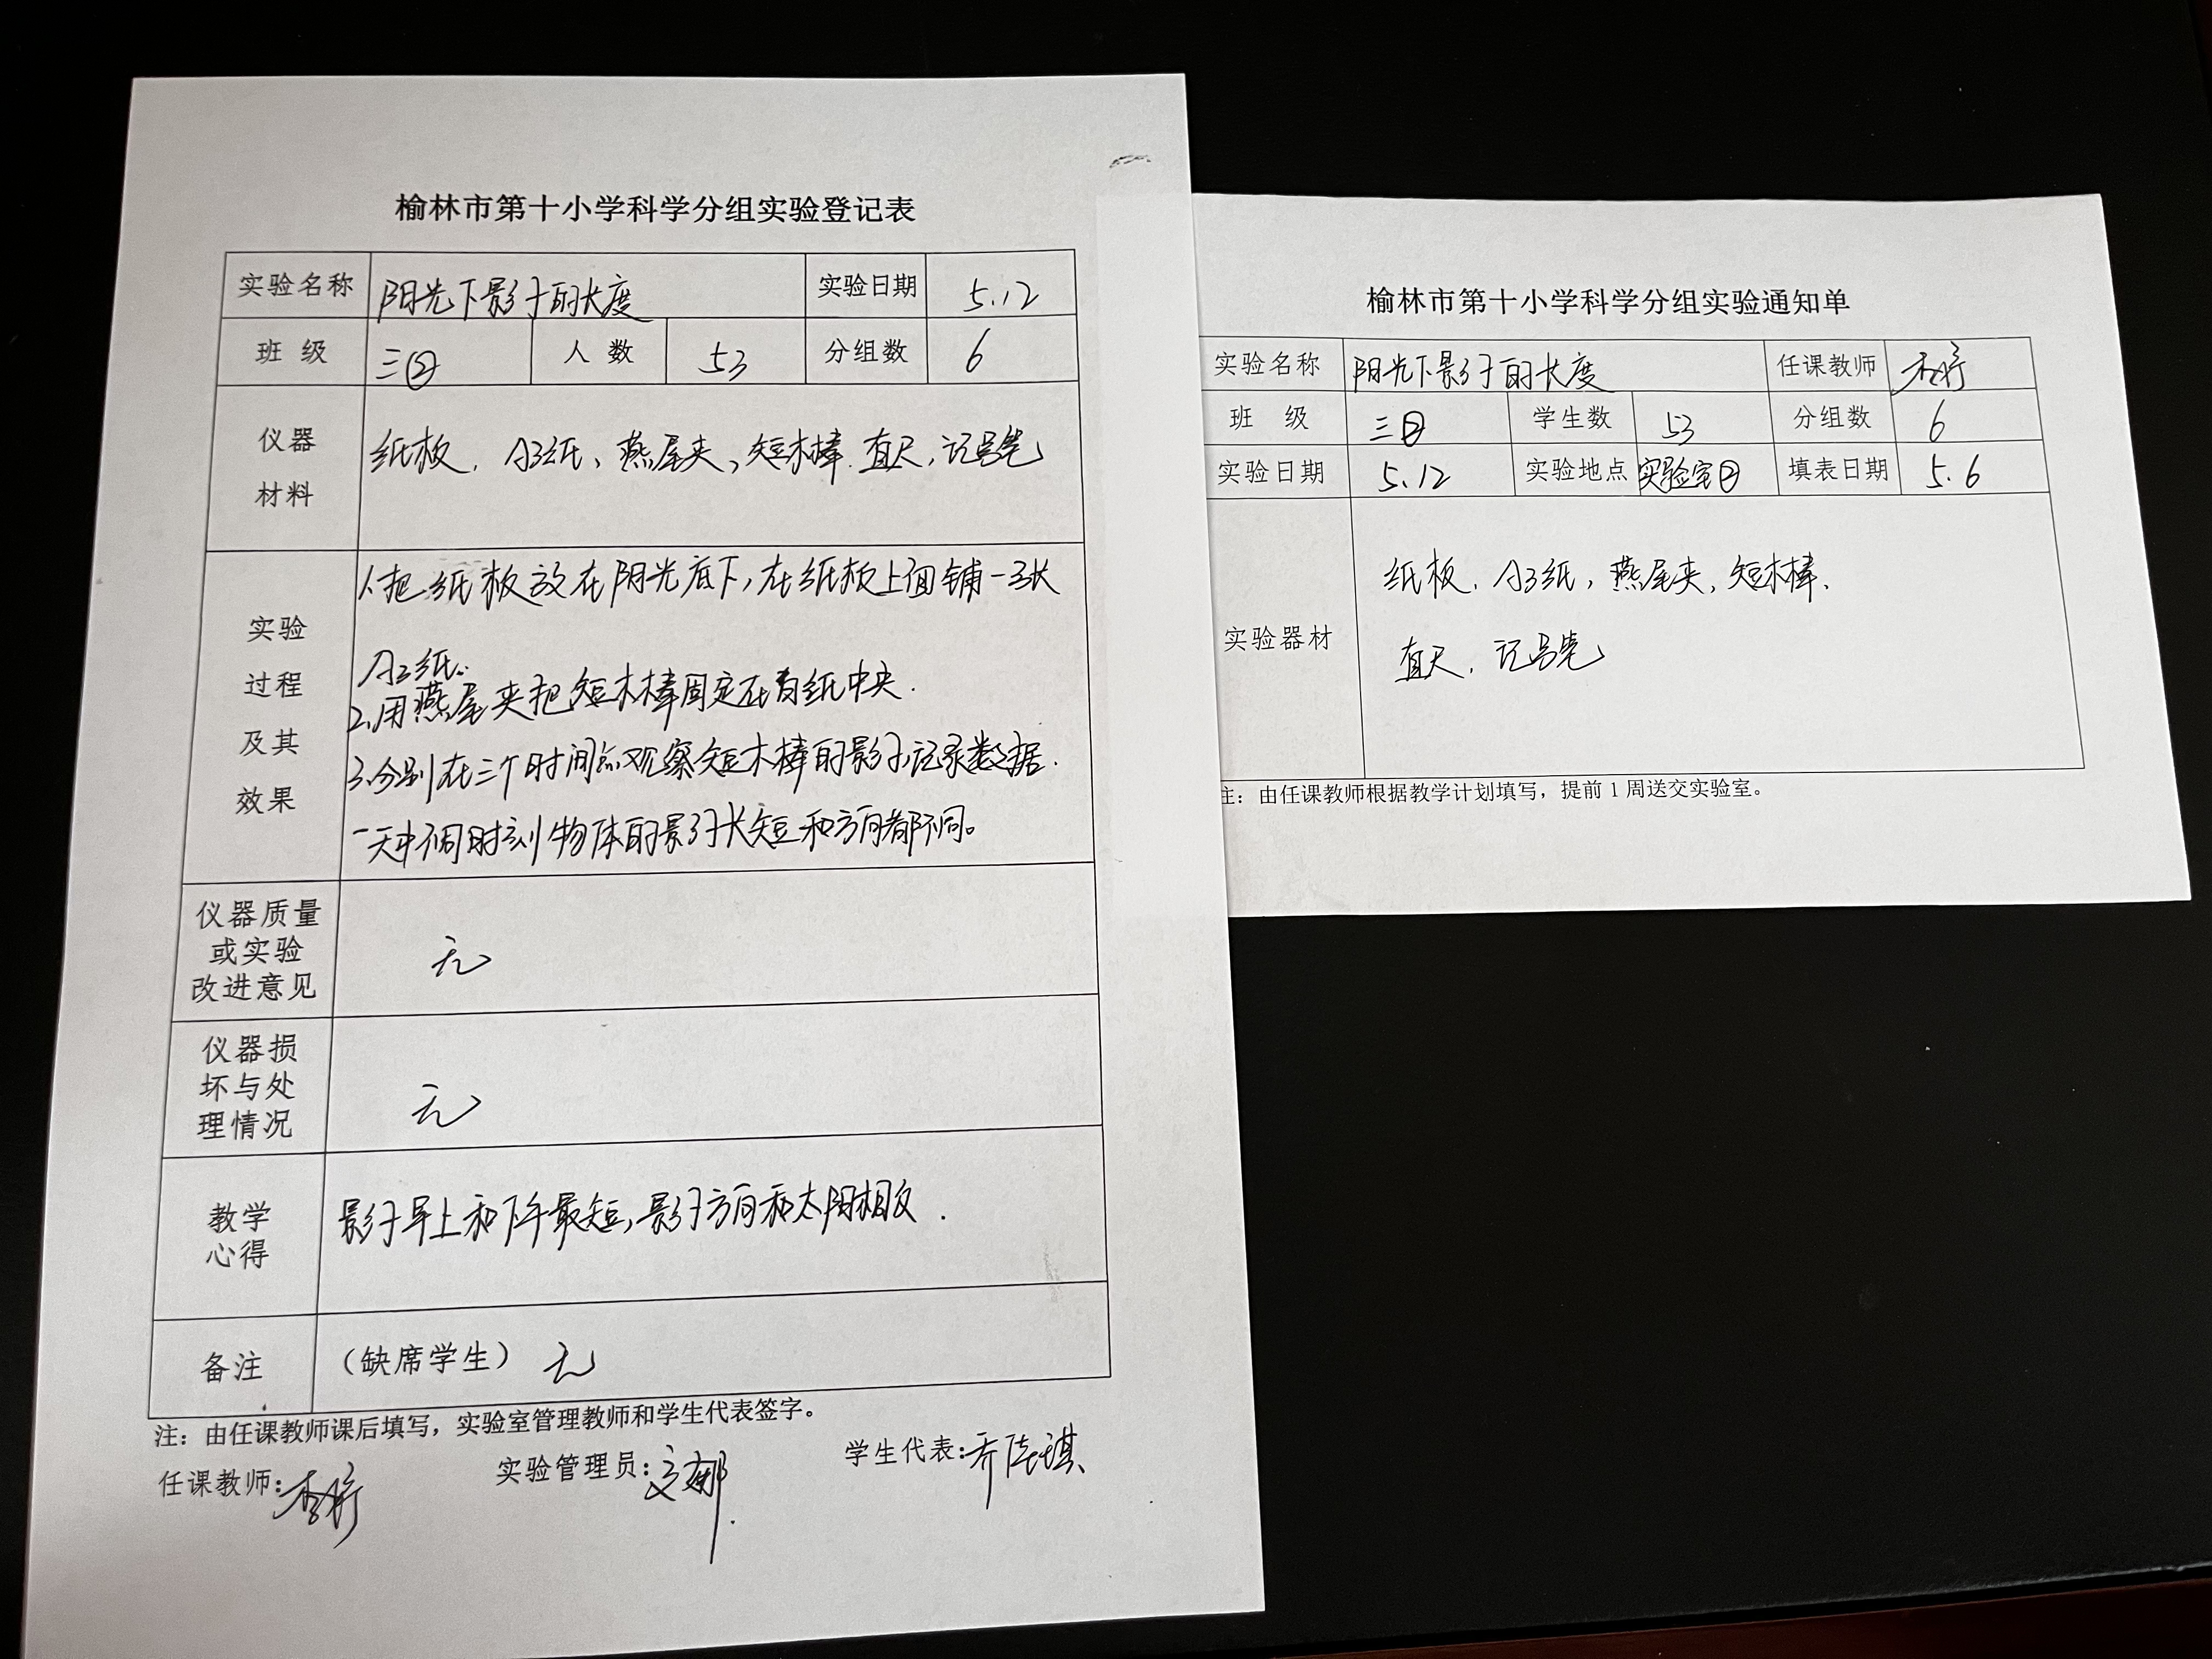 榆林市第十小学科学分组实验登记表
实验名称 阳光下影子的长度 实验日期 5.12
班 级 三② 人 数 53 分组数 6
仪器 材料 纸板、A3纸、燕尾夹、短木棒、直尺、记号笔
实验 过程 及其 效果
1.把纸板放在阳光底下,在纸板上面铺一张
A3纸。
2.用燕尾夹把短木棒固定在白纸中央.
3.分别在三个时间点观察短木棒的影子,记录数据.
一天中不同时刻物体的影子长短和方向都不同。
仪器质量
或实验
改进意见
无
仪器损
坏与处
理情况
无
教学
心得
影子早上和下午最短,影子方向和太阳相反.
备注 (缺席学生) 无
注:由任课教师课后填写,实验室管理教师和学生代表签字。
任课教师: 实验管理员: 学生代表:
榆林市第十小学科学分组实验通知单
实验名称 阳光下影子的长度 任课教师
班 级 三② 学生数 53 分组数 6
实验日期 5.12 实验地点 实验室② 填表日期 5.6
实验器材
纸板、A3纸,燕尾夹,短木棒.
直尺、记号笔
注:由任课教师根据教学计划填写,提前1周送交实验室。